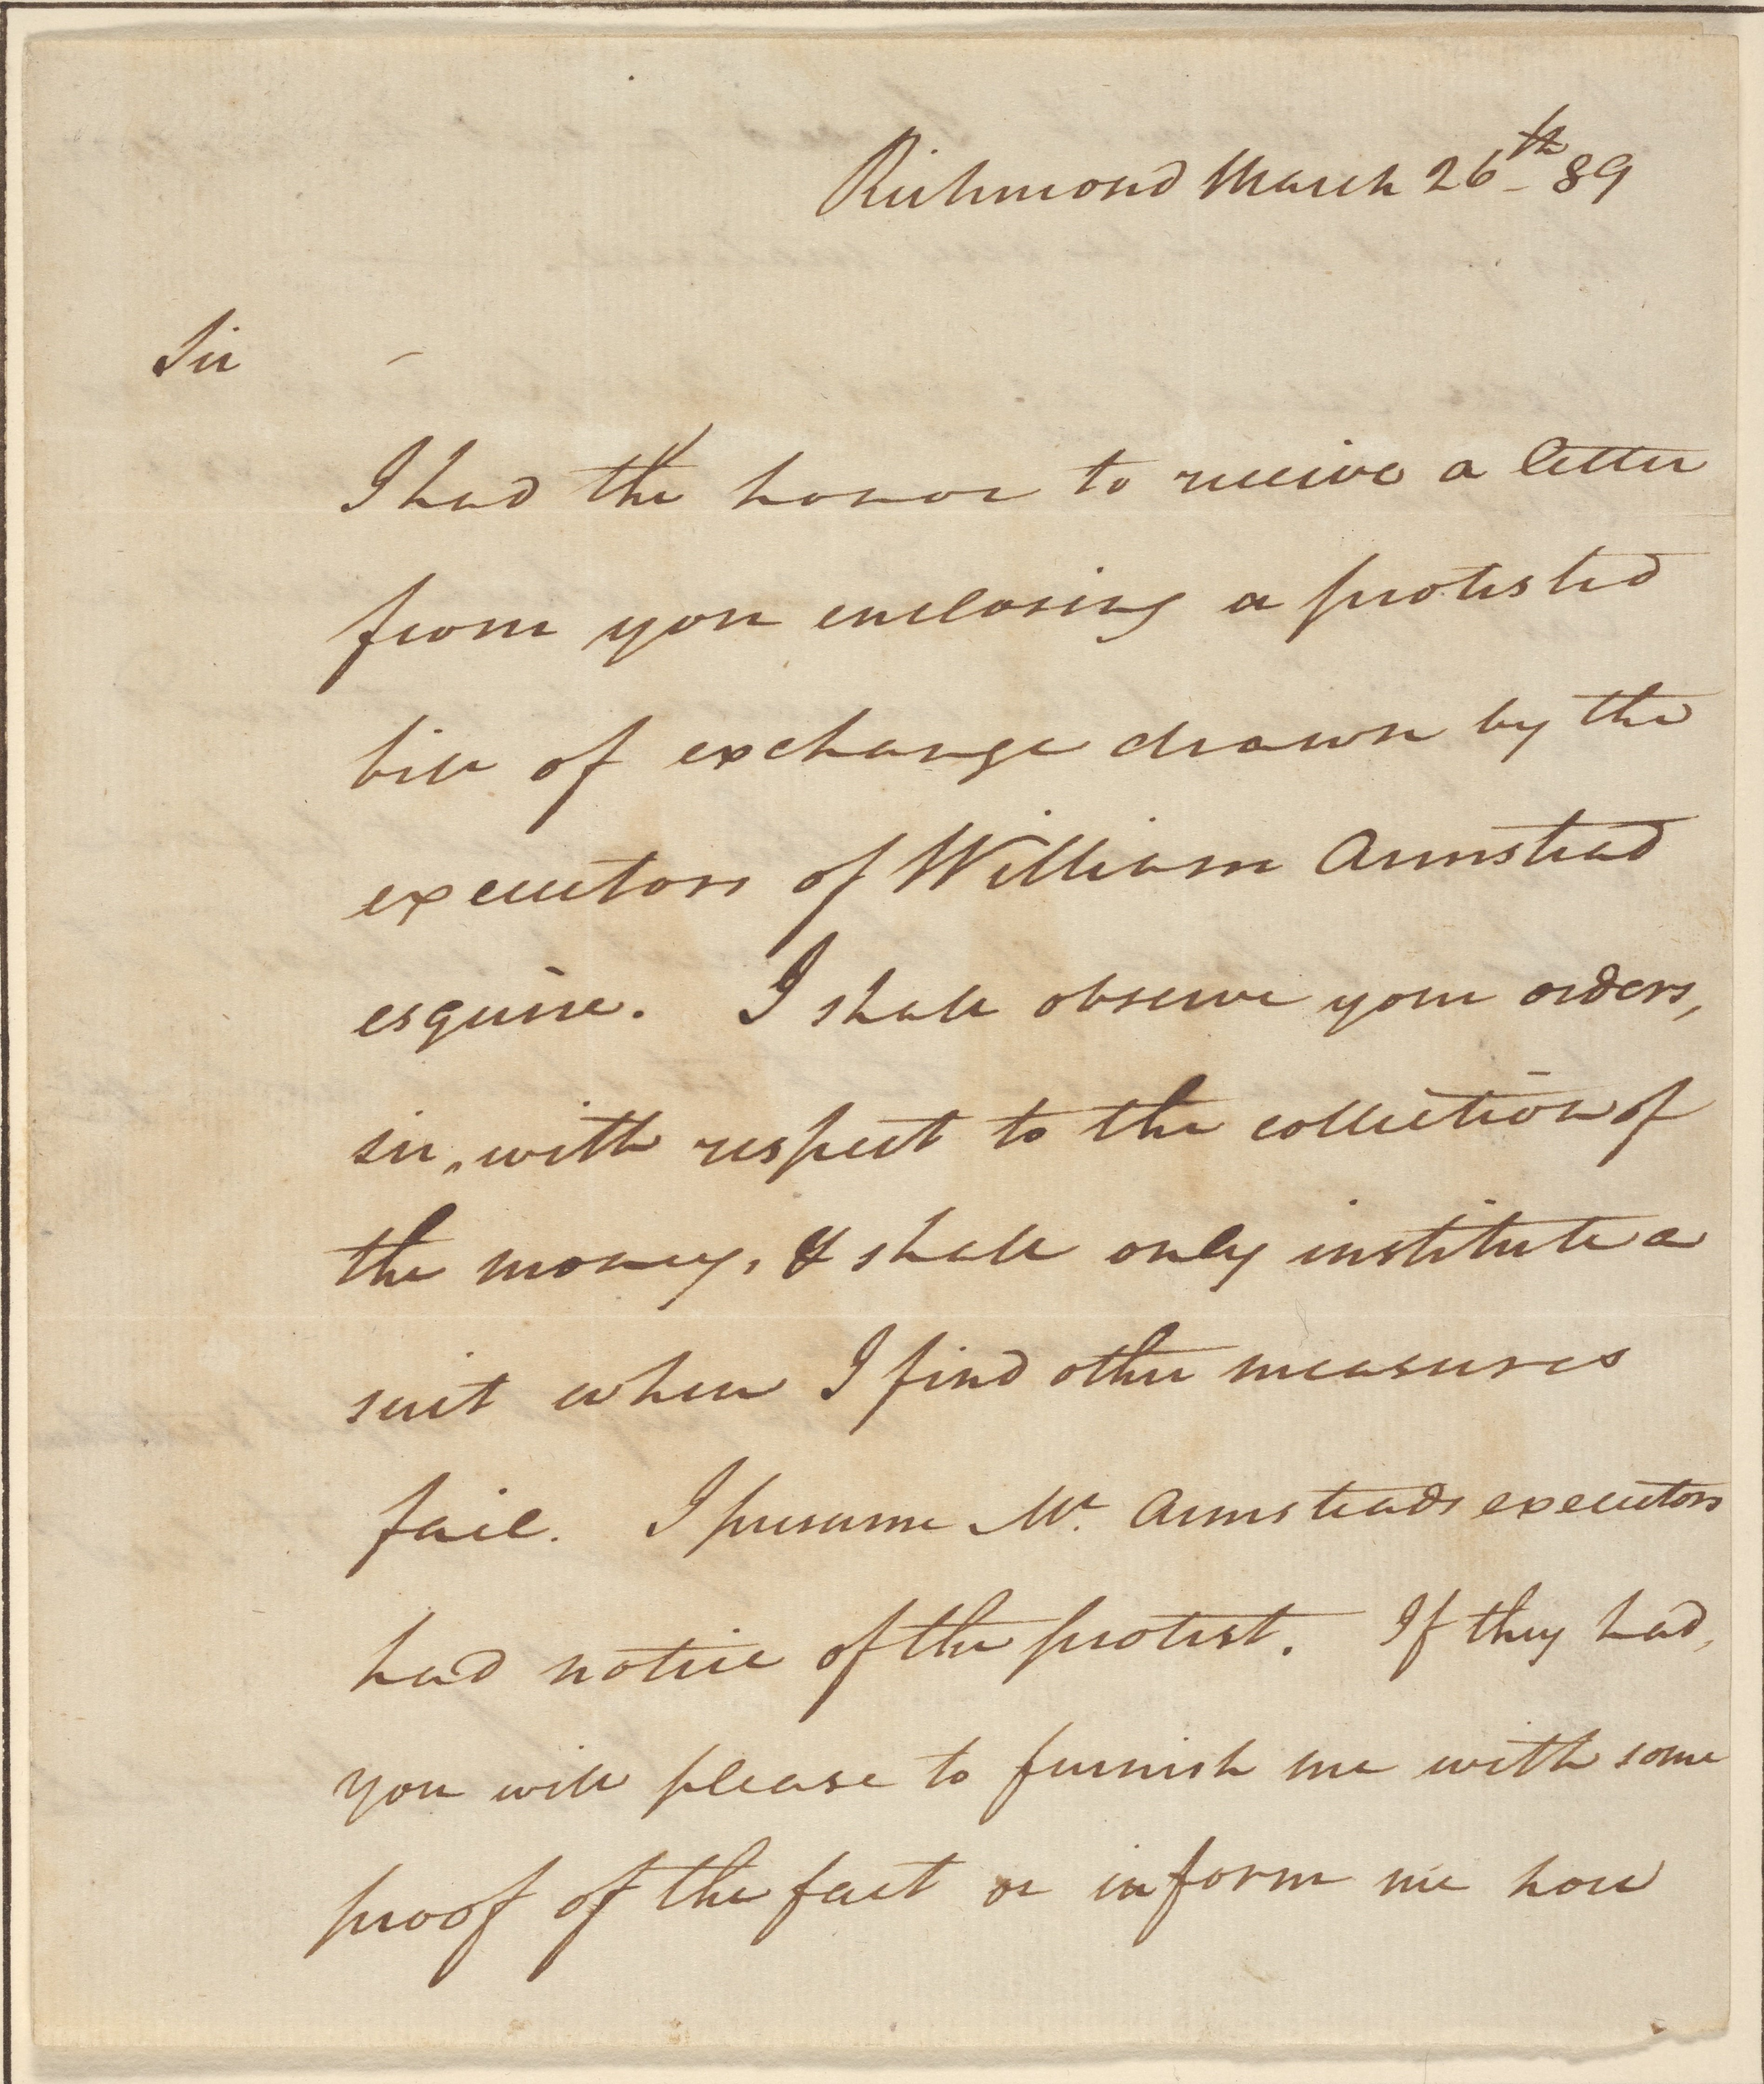 Richmond March 26th 89
Sir
I had the honor to receive a letter
from you enclosing a protested
bill of exchange drawn by the
executors of William Armstead
esquire. I shall observe your orders,
sir, with respect to the collection of
the money, & shall only institute a
suit when I find other measures
fail. I presume Mr. Armsteads executors
had notice of the protest. If they had,
you will please to furnish me with some
proof of the fact or inform me how